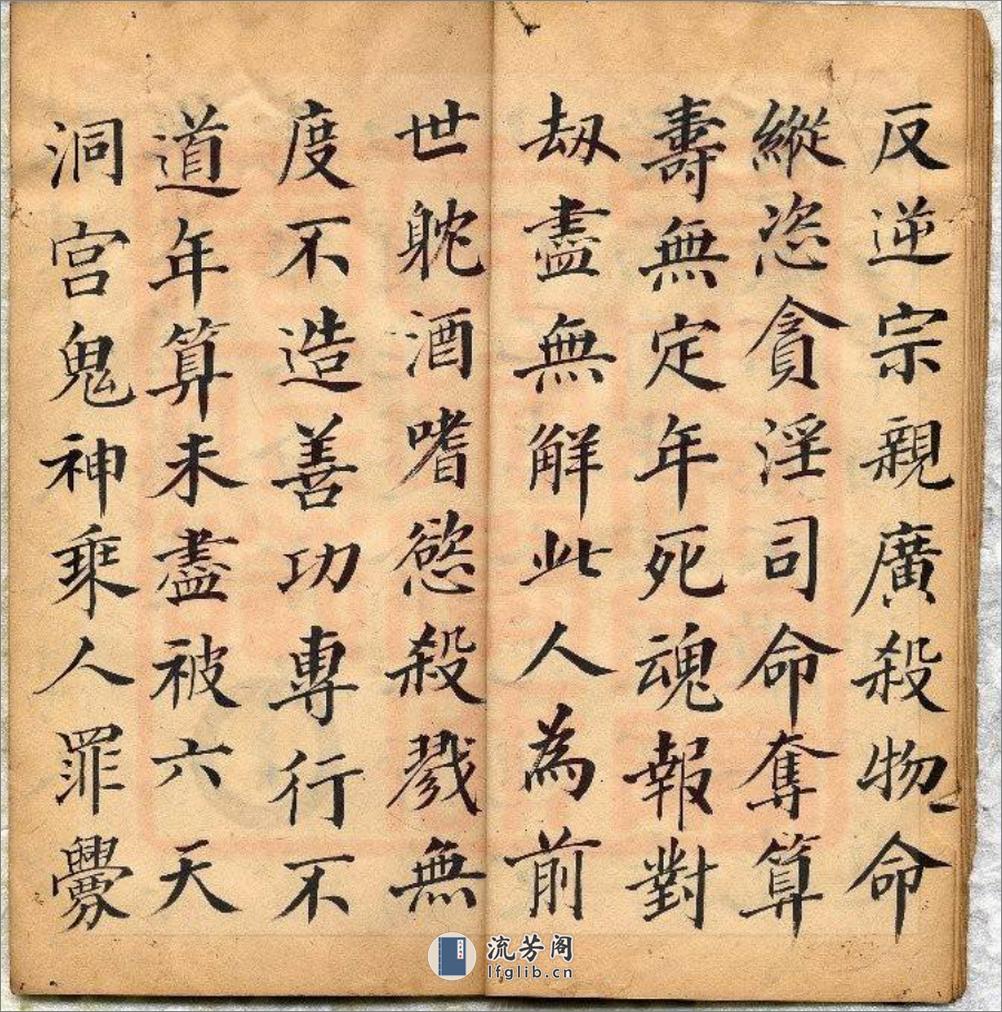 反逆宗親廣殺物命
縱恣貪淫司命奪算
壽無定年死魂報對
劫盡無解此人為前
世躭酒嗜慾殺戮無
度不造善功專行不
道年算未盡被六天
洞宫鬼神乘人罪釁
流芳阁
lfglib.cn